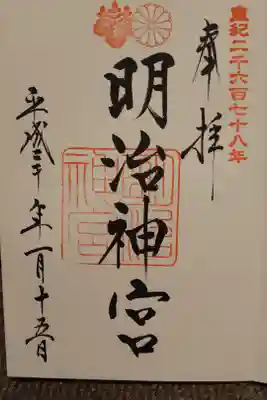 皇紀二千六百七十八年
奉拝
明治神宮
明治神宮
平成三十年一月十五日